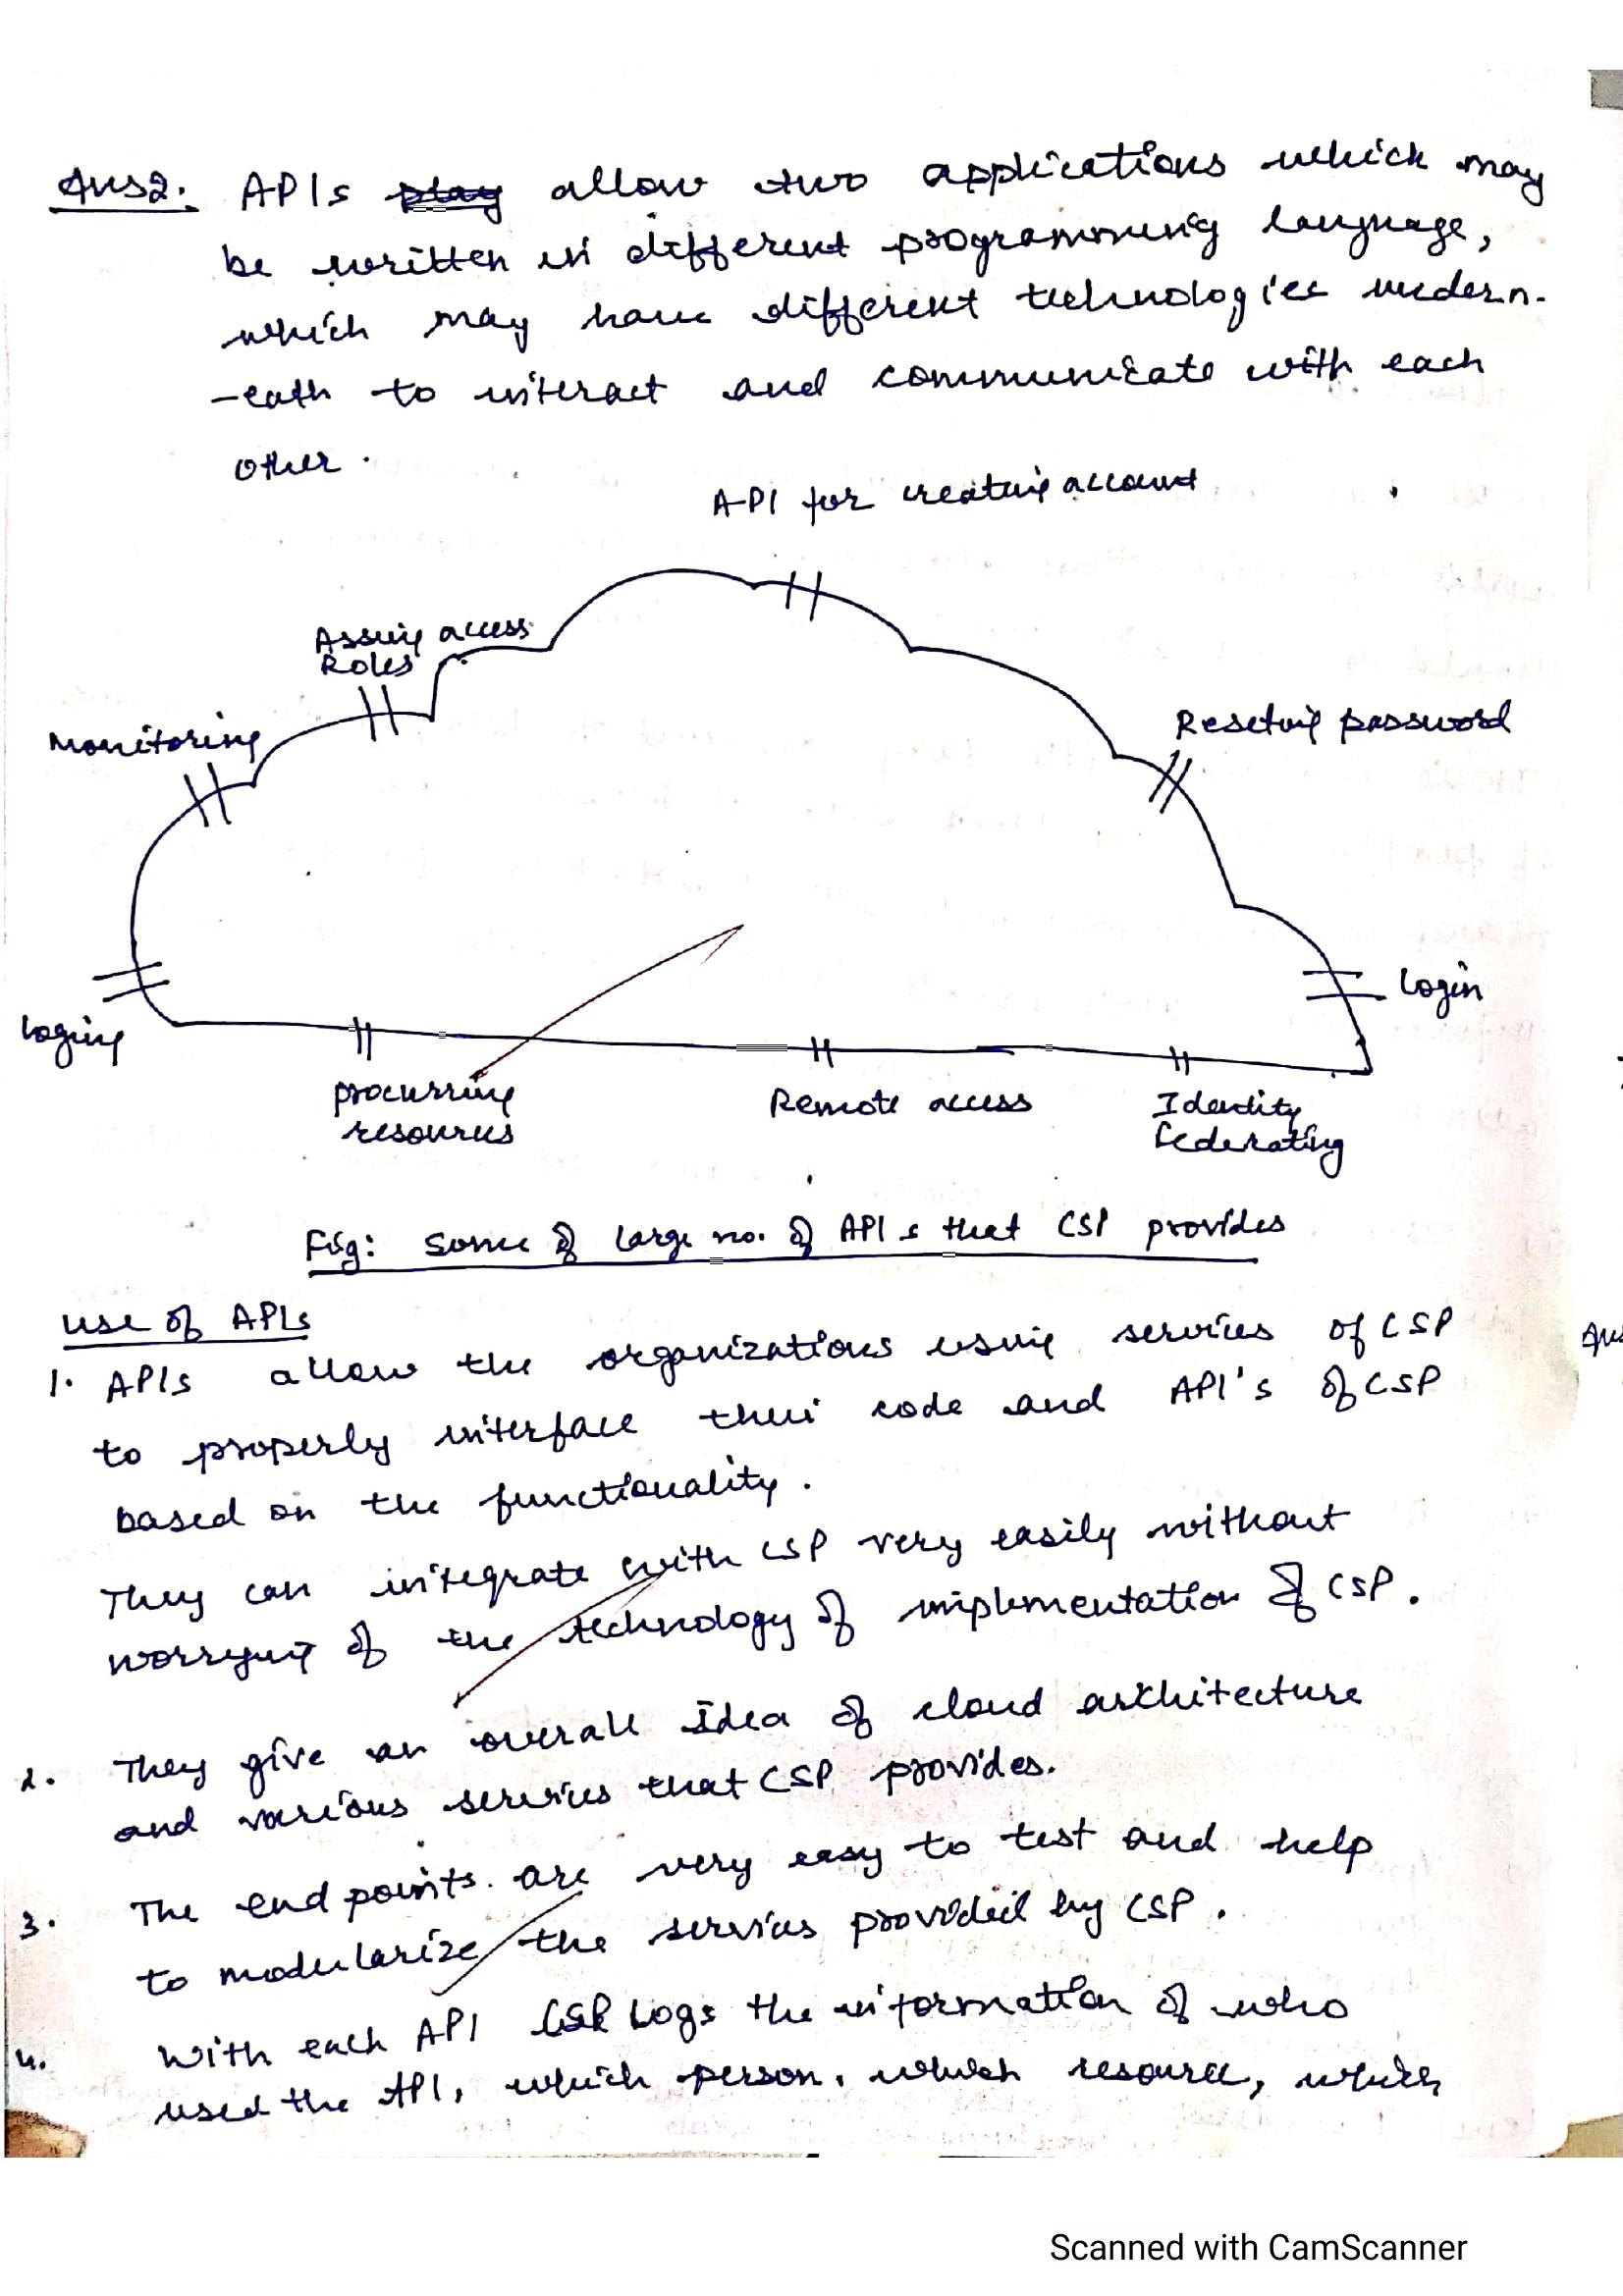 Ans2. APIs play allow two applications which may
be written in different programming language,
which may have different technologies undern-
-eath to interact and communicate with each
other.
API for creating account
Assing access
Roles
Monitoring
Reseting password
Login
Loging
procurring
resources
Remote access
Identity
federating
Fig: Some of large no. of APIs that CSP provides
use of APIs
1. APIs allow the organizations using services of CSP
to properly interface their code and API's of CSP
based on the functionality.
They can integrate with CSP very easily without
worrying of the technology of implementation of CSP.
2. They give an overall idea of cloud architecture
and various services that CSP provides.
3. The end points. are very easy to test and help
to modularize the services provided by CSP.
4. With each API CSP Logs the information of who
used the API, which person, which resource, which
Ans
Scanned with CamScanner